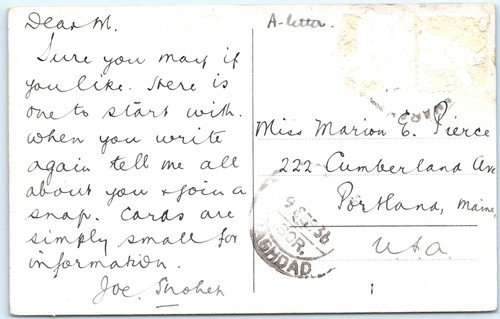 Dear M.
Sure you may if
you like. Here is
one to start with.
When you write
again tell me all
about you & join a
snap. Cards are
simply small for
information.
Joe.
A-letter.
Miss Marion E. Pierce
222 Cumberland Ave
Portland, Maine,
U.S.A
9 SEP 36
SOR.
BAGHDAD